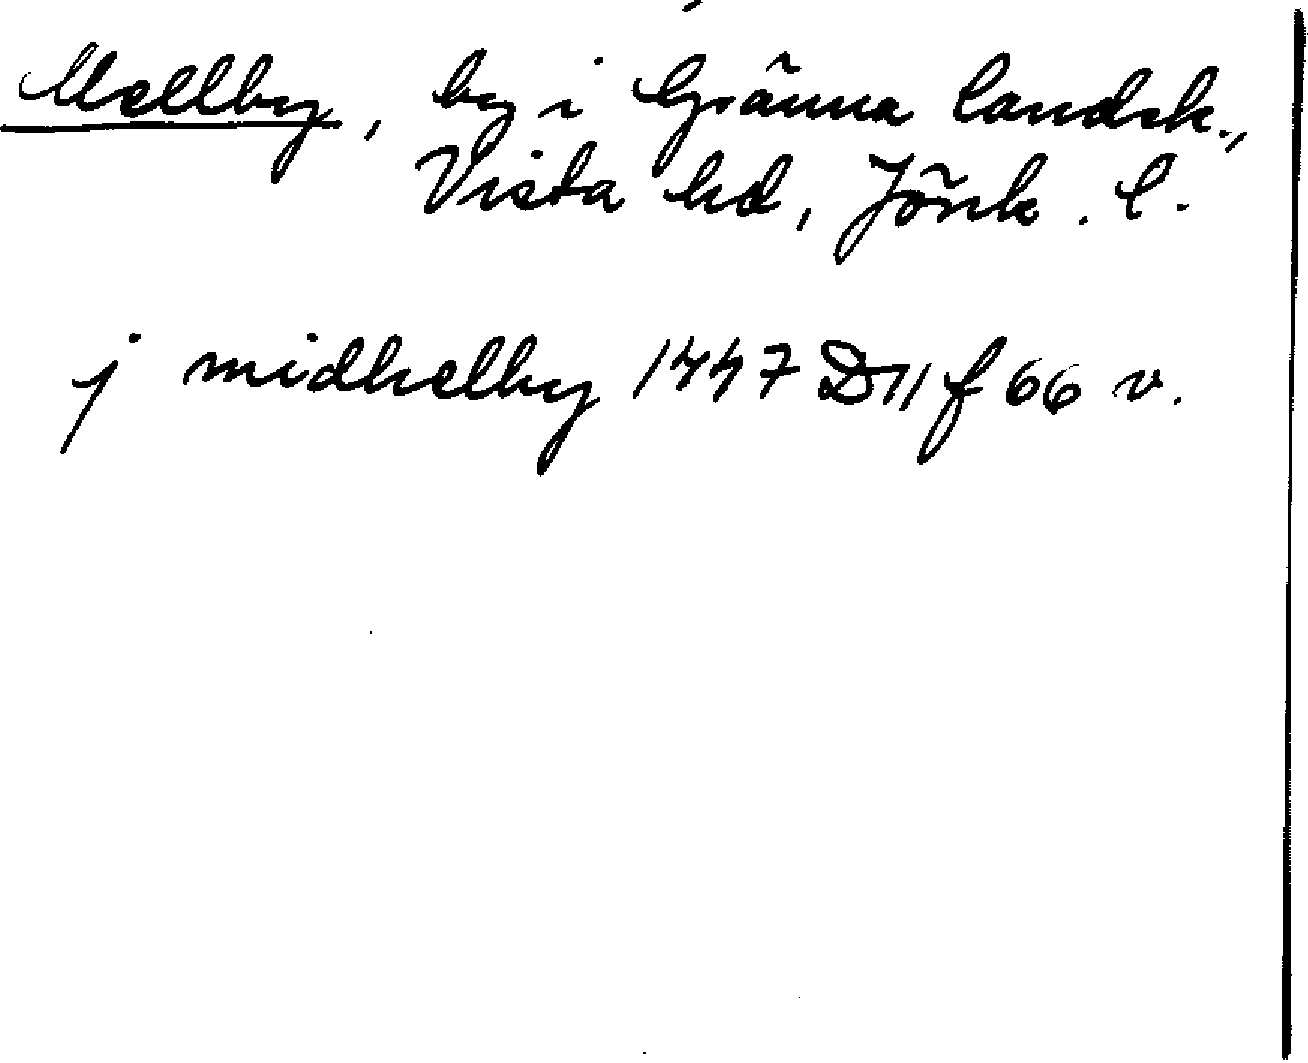 Mellby, by i Gränna landsk.,
Vista hd, Jönk. l.
j midhelby 1447 D11 f 66 v.